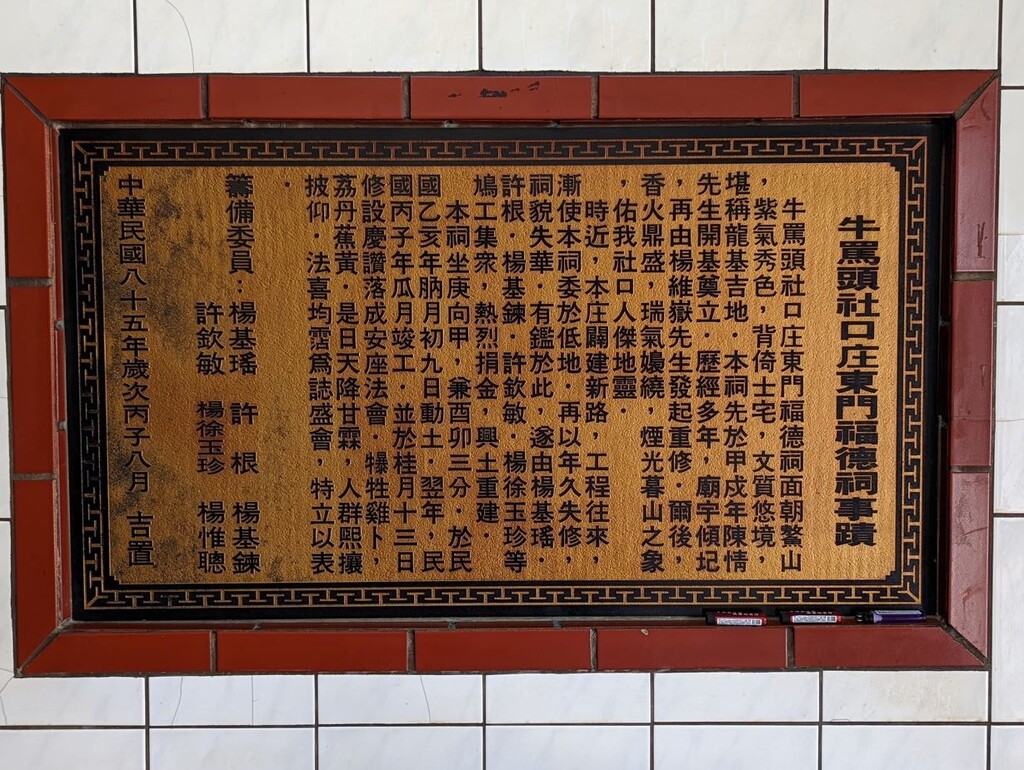 牛罵頭社口庄東門福德祠事蹟
牛罵頭社口庄東門福德祠面朝鰲山
，紫氣秀色，背倚士宅，文質悠境，
堪稱龍基吉地．本祠先於甲戍年陳情
先生開基奠立．歷經多年，廟宇傾圮
，再由楊維嶽先生發起重修．爾後，
香火鼎盛，瑞氣嬡繞，煙光暮山之象
，佑我社口人傑地靈．
時近，本庄闢建新路，工程往來，
漸使本祠委於低地．再以年久失修，
祠貌失華．有鑑於此，遂由楊基瑤．
許根．楊基鍊．許欽敏．楊徐玉珍等
鳩工集衆，熱烈捐金，興土重建．
本祠坐庚向甲，兼酉卯三分．於民
國乙亥年朒月初九日動土．翌年，民
國丙子年瓜月竣工．並於桂月十三日
修設慶讚落成安座法會．犦牲雞卜，
荔丹蕉黃．是日天降甘霖，人群熙攘
披仰．法喜均霑爲誌盛會，特立以表
．
籌備委員：楊基瑤　許　根　楊基鍊
許欽敏　楊徐玉珍　楊惟聰
中華民國八十五年歲次丙子八月　吉置